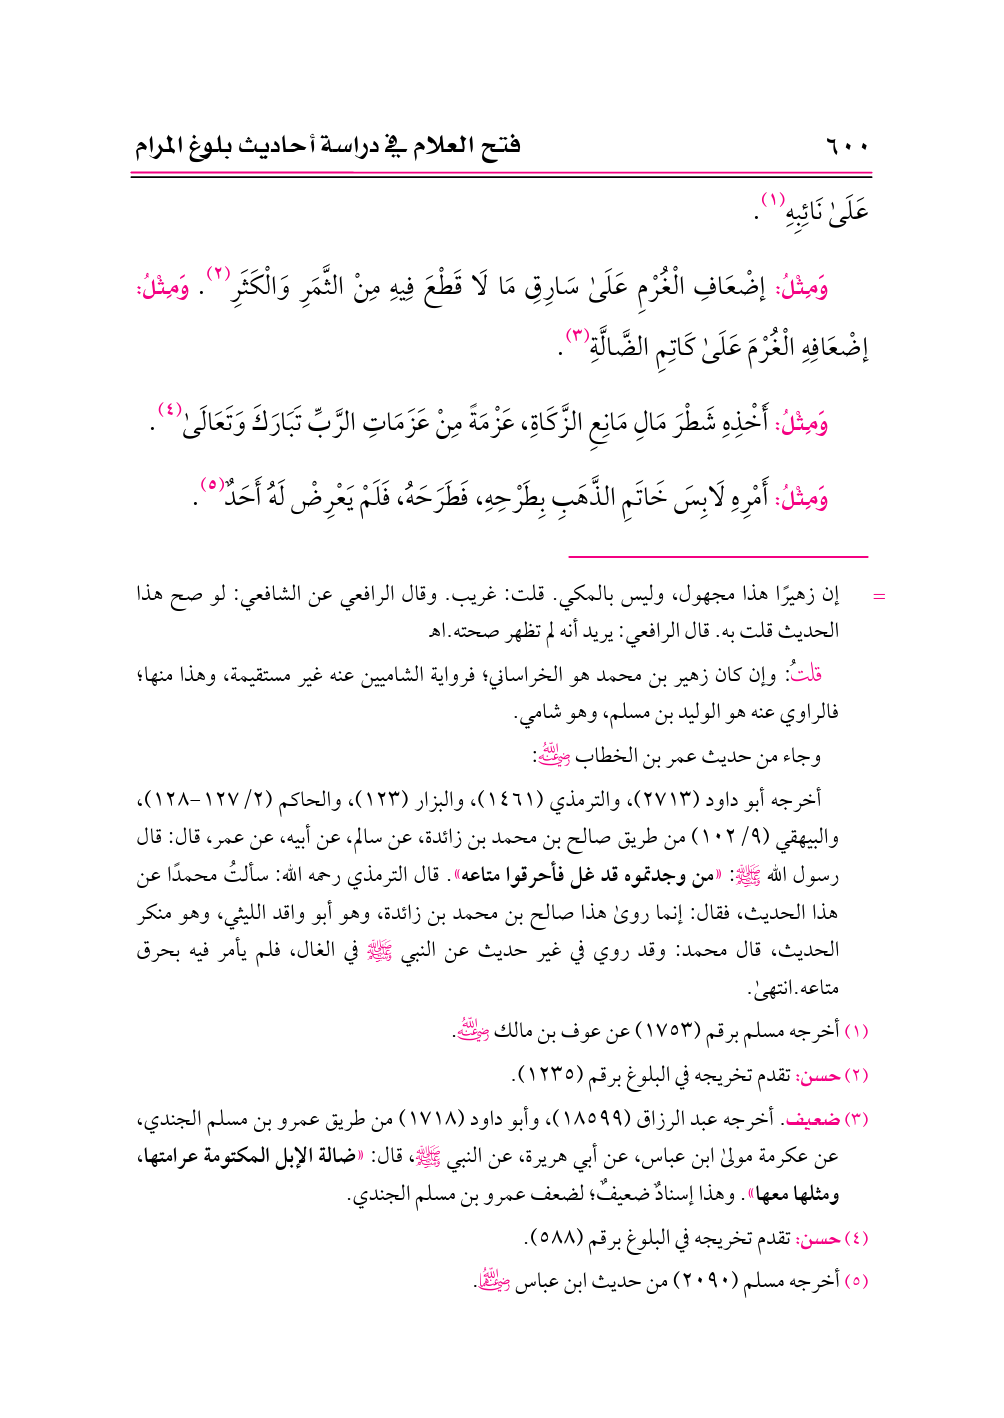 ٦٠٠ فتح العلام في دراسة أحاديث بلوغ المرام
عَلَىٰ نَائِبِهِ(١).
وَمِثْلُ: إضْعَافِ الْغُرْمِ عَلَىٰ سَارِقِ مَا لَا قَطْعَ فِيهِ مِنْ الثَّمَرِ وَالْكَثَرِ(٢). وَمِثْلُ:
إضْعَافِهِ الْغُرْمَ عَلَىٰ كَاتِمِ الضَّالَّةِ(٣).
وَمِثْلُ: أَخْذِهِ شَطْرَ مَالِ مَانِعِ الزَّكَاةِ، عَزْمَةً مِنْ عَزَمَاتِ الرَّبِّ تَبَارَكَ وَتَعَالَىٰ(٤).
وَمِثْلُ: أَمْرِهِ لَابِسَ خَاتَمِ الذَّهَبِ بِطَرْحِهِ، فَطَرَحَهُ، فَلَمْ يَعْرِضْ لَهُ أَحَدٌ(٥).
= إن زهيرًا هذا مجهول، وليس بالمكي. قلت: غريب. وقال الرافعي عن الشافعي: لو صح هذا
الحديث قلت به. قال الرافعي: يريد أنه لم تظهر صحته.اهـ
قلتُ: وإن كان زهير بن محمد هو الخراساني؛ فرواية الشاميين عنه غير مستقيمة، وهذا منها؛
فالراوي عنه هو الوليد بن مسلم، وهو شامي.
وجاء من حديث عمر بن الخطاب رضي الله عنه:
أخرجه أبو داود (٢٧١٣)، والترمذي (١٤٦١)، والبزار (١٢٣)، والحاكم (٢/ ١٢٧-١٢٨)،
والبيهقي (٩/ ١٠٢) من طريق صالح بن محمد بن زائدة، عن سالم، عن أبيه، عن عمر، قال: قال
رسول الله ﷺ: «من وجدتموه قد غل فأحرقوا متاعه». قال الترمذي رحمه الله: سألتُ محمدًا عن
هذا الحديث، فقال: إنما روىٰ هذا صالح بن محمد بن زائدة، وهو أبو واقد الليثي، وهو منكر
الحديث، قال محمد: وقد روي في غير حديث عن النبي ﷺ في الغال، فلم يأمر فيه بحرق
متاعه.انتهىٰ.
(١) أخرجه مسلم برقم (١٧٥٣) عن عوف بن مالك رضي الله عنه.
(٢) حسن: تقدم تخريجه في البلوغ برقم (١٢٣٥).
(٣) ضعيف. أخرجه عبد الرزاق (١٨٥٩٩)، وأبو داود (١٧١٨) من طريق عمرو بن مسلم الجندي،
عن عكرمة مولىٰ ابن عباس، عن أبي هريرة، عن النبي ﷺ، قال: «ضالة الإبل المكتومة عرامتها،
ومثلها معها». وهذا إسنادٌ ضعيفٌ؛ لضعف عمرو بن مسلم الجندي.
(٤) حسن: تقدم تخريجه في البلوغ برقم (٥٨٨).
(٥) أخرجه مسلم (٢٠٩٠) من حديث ابن عباس رضي الله عنهما.